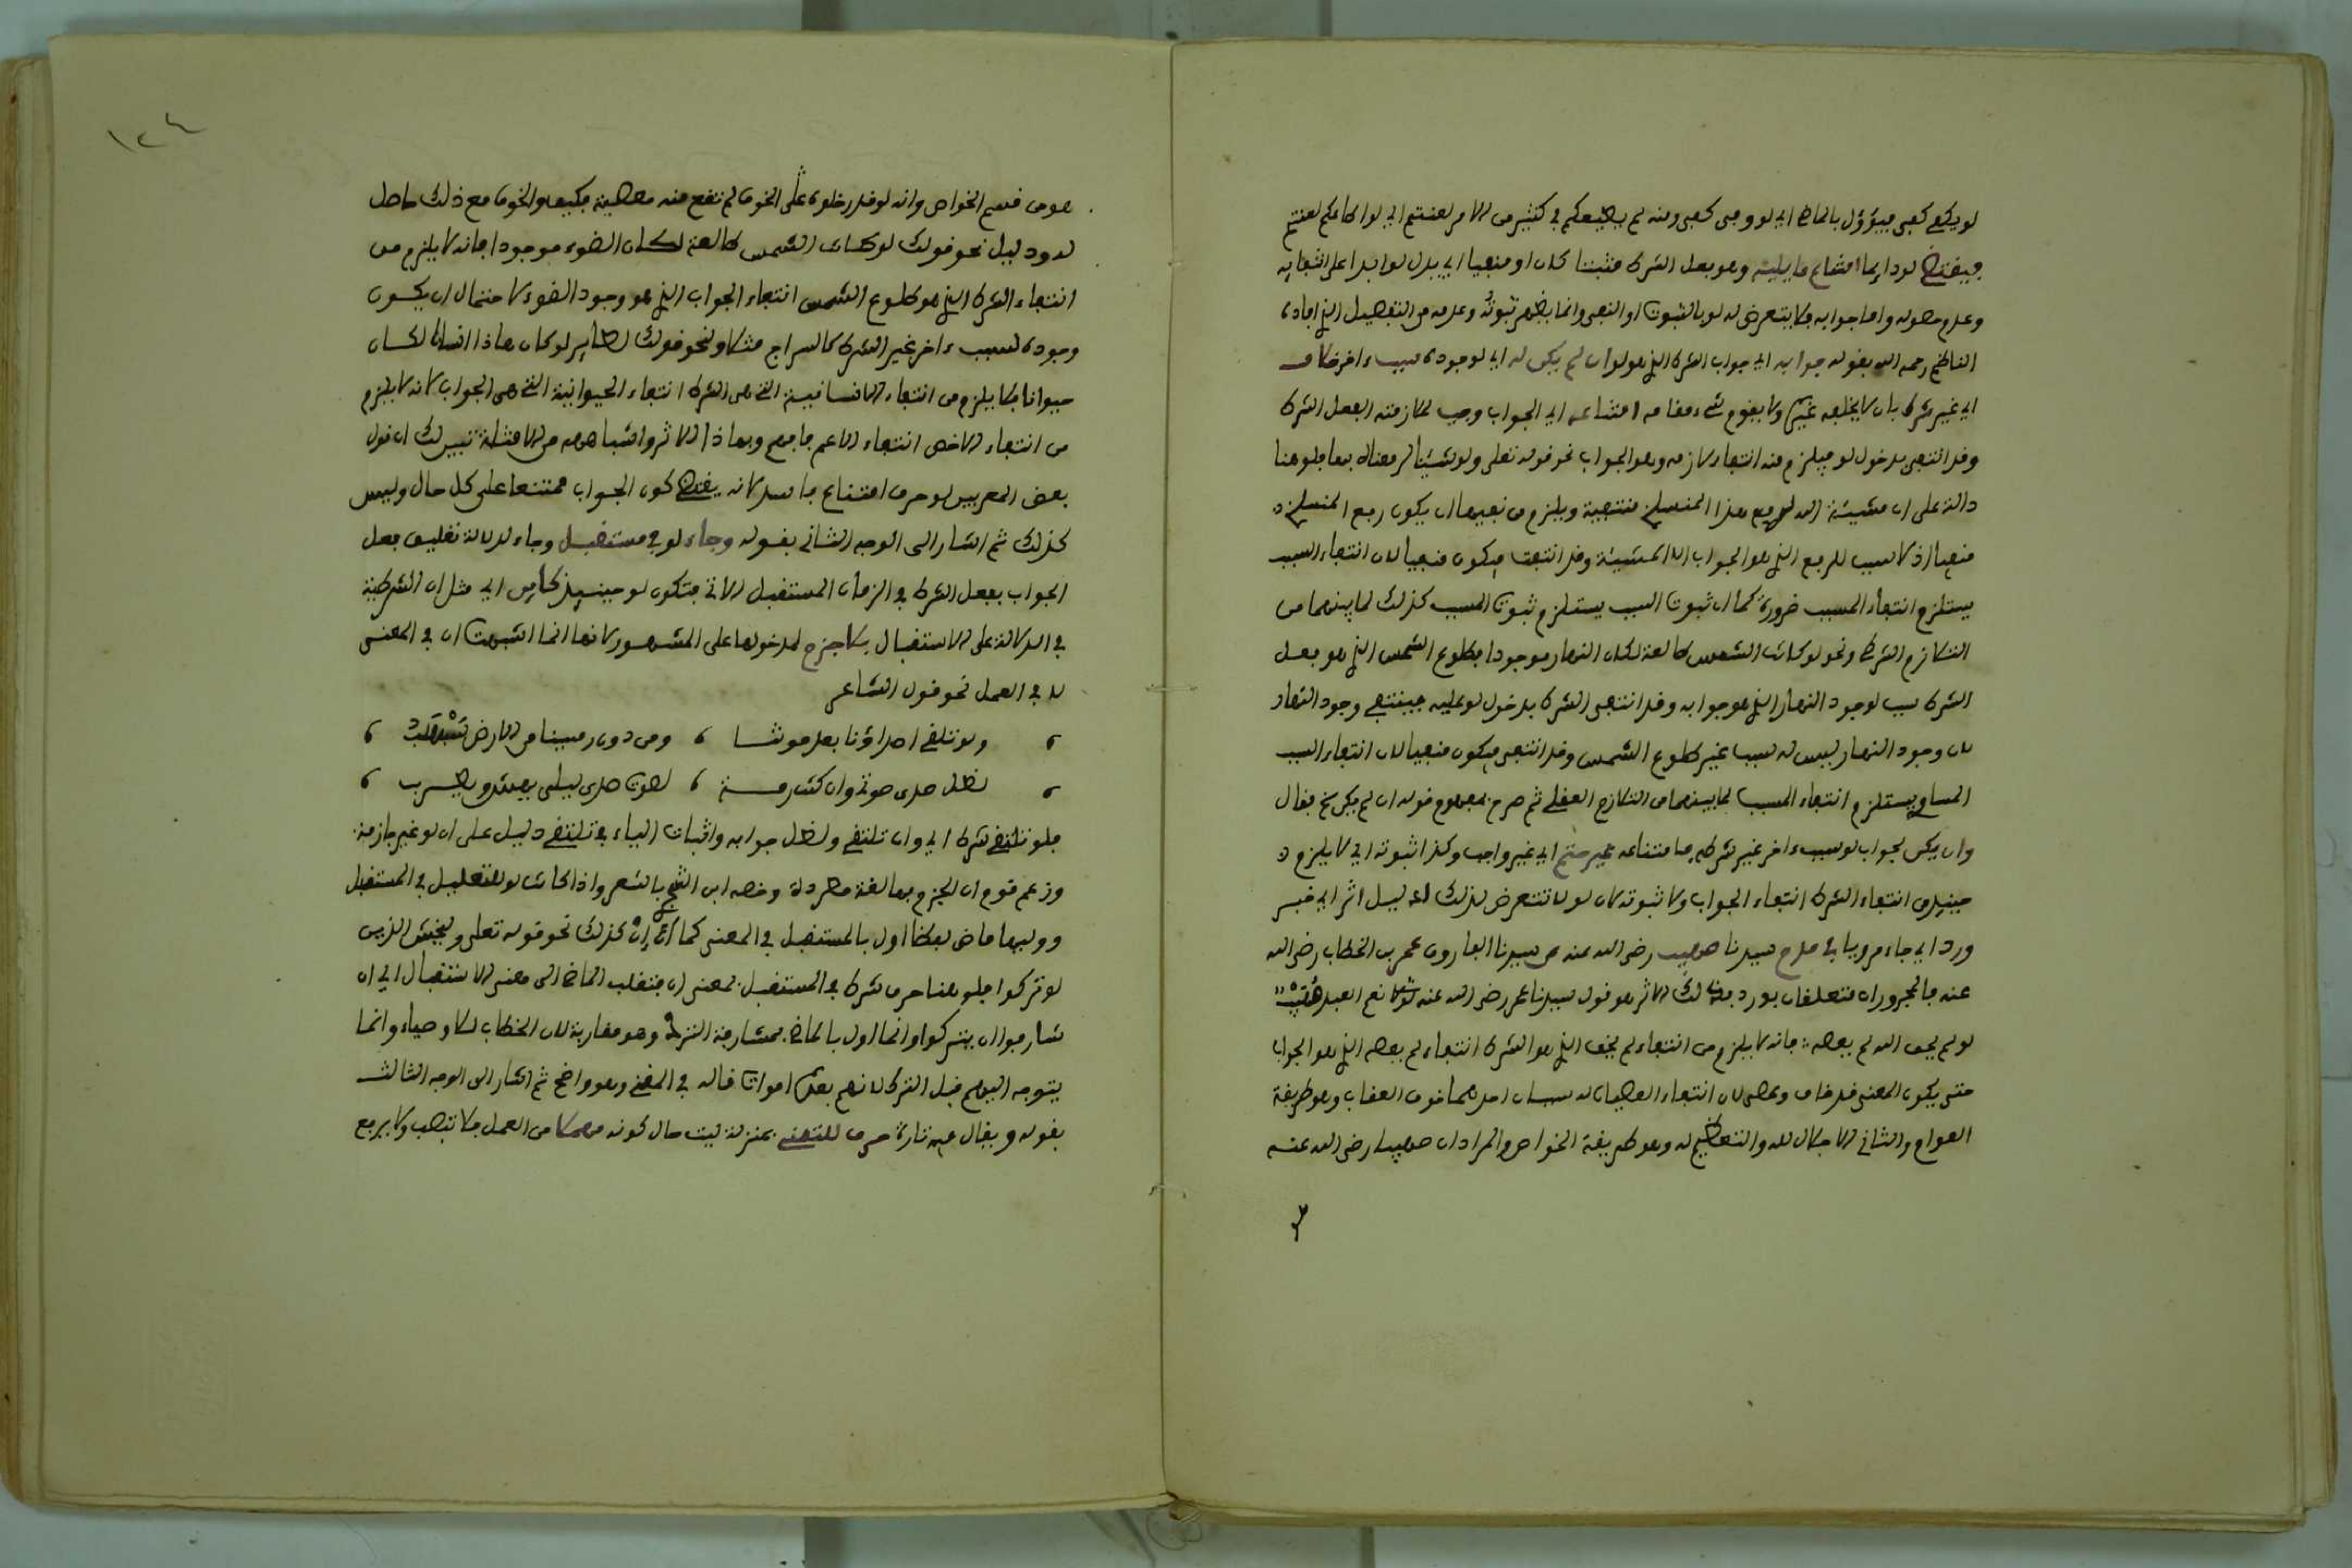 لو يكفى كفى فيؤول بالماضي اي لو وفى كفى ومنه لو يطيعكم في كثير من الامر لعنتم اي لو اطاعكم لعنتم
فيقتضي لو دايما امتناع ما يليه وهو فعل الشرط مثبتا كان او منفيا اي يدل لو ابدا على انتفايه
وعدم حصوله واما جوابه فلا يتعرض له لو بالثبوت او النفي وانما يظهر ثبوته وعدمه من التفصيل الذي افاده
الناظم رحمه الله بقوله جوابه اي جواب الشرط الذي هو لو ان لم يكن له اي لوجوده سبب ءاخر خلاف
اي غير شرط بان لا يخلفه غيره ولا يقوم شيء مقامه امتناعه اي الجواب وجب لملازمته الفعل الشرط
وقد انتفى بدخول لو فيلزم منه انتفاء لازمه وهو الجواب نحو قوله تعلى ولو شئنا لرفعناه بها فلو هنا
دالة على ان مشيئة الله لرفع هذا المنسلخ منتفية ويلزم من نفيها ان يكون رفع المنسلخ
منفيا اذ لا سبب للرفع الذي هو الجواب الا المشيئة وقد انتفت فيكون منفيا لان انتفاء السبب
يستلزم انتفاء المسبب ضرورة كما ان ثبوت السبب يستلزم ثبوت المسبب كذلك لما بينهما من
التلازم الشرطي ونحو لو كانت الشمس طالعة لكان النهار موجودا فطلوع الشمس الذي هو فعل
الشرط سبب لوجود النهار الذي هو جوابه وقد انتفى الشرط بدخول لو عليه فينتفي وجود النهار
لان وجود النهار ليس له سبب غير طلوع الشمس وقد انتفى فيكون منفيا لان انتفاء السبب
المساوي يستلزم انتفاء المسبب لما بينهما من التلازم العقلي ثم صرح بمفهوم قوله ان لم يكن فقال
وان يكن لجواب لو سبب ءاخر غير شرطه فامتناعه غير حتم اي غير واجب وكذا ثبوته اي لا يلزم
حينيذ من انتفاء الشرط انتفاء الجواب ولا ثبوته لان لو لا تتعرض لذلك دليل اثر اي خبر
ورد اي جاء مرويا في مدح سيدنا صهيب رضى الله عنه عن سيدنا الفاروق عمر بن الخطاب رضى الله
عنه فالمجروران متعلقان بورد وذلك الاثر هو قول سيدنا عمر رضى الله عنه نعم العبد صهيب
لو لم يخف الله لم يعصه فانه لا يلزم من انتفاء لم يخف الذي هو الشرط انتفاء لم يعصه الذي هو الجواب
حتى يكون المعنى قد خاف وعصى لان انتفاء العصيان له سببان احدهما خوف العقاب وهو طريقة
العوام والثاني الاجلال لله والتعظيم له وهو طريقة الخواص والمراد ان صهيبا رضى الله عنه
١٢٤
هو من قسم الخواص وانه لو قدر خلوه عن الخوف لم تقع منه معصية فكيف والخوف مع ذلك حاصل
له ودليل نحو قولك لو كانت الشمس طالعة لكان الضوء موجودا فانه لا يلزم من
انتفاء الشرط الذي هو طلوع الشمس انتفاء الجواب الذي هو وجود الضوء لاحتمال ان يكون
وجوده لسبب ءاخر غير الشرط كالسراج مثلا ونحو قولك لطاير لو كان هاذا انسانا لكان
حيوانا فلا يلزم من انتفاء الانسانية التي هي الشرط انتفاء الحيوانية التي هي الجواب لانه لا يلزم
من انتفاء الاخص انتفاء الاعم فافهم وبهاذا الاثر واشباهه من الامثلة تبين لك ان قول
بعض المعربين لو حرف امتناع فاسد لانه يقتضي كون الجواب ممتنعا على كل حال وليس
كذلك ثم اشار الى الوجه الثاني بقوله وجاء لو في مستقبل وجاء لدلالة تعليق فعل
الجواب بفعل الشرط في الزمان المستقبل الاتي فتكون لو حينيذ كإن اي مثل ان الشرطية
في الدلالة على الاستقبال بلا جزم لمدخولها على المشهور لانها انما اشبهت ان في المعنى
لا في العمل نحو قول الشاعر
ولو تلتقي اصداؤنا بعد موتنا ، ومن دون رمسينا من الارض سبسب
لظل صدى صوتي وان كنت رمة ، لصوت صدى ليلى يهش ويطرب
فلو تلتقي شرط اي وان تلتقي ولظل جوابه واثبات الياء في تلتقي دليل على ان لو غير جازمة
وزعم قوم ان الجزم بها لغة مطردة وخصه ابن الشجري بالشعر واذا كانت لو للتعليل في المستقبل
ووليها ماض لفظا اول بالمستقبل في المعنى كما ان إن كذلك نحو قوله تعلى وليخش الذين
لو تركوا فلو هنا حرف شرط في المستقبل بمعنى ان فتقلب الماضي الى معنى الاستقبال اي ان
شارفوا ان يتركوا وانما اول بالماضي بمشارفة الترك وهو مقاربة لان الخطاب للاوصياء وانما
يتوجه اليهم قبل الترك لانهم بعده اموات قاله في المغني وهو واضح ثم اشار الى الوجه الثالث
بقوله ويقال فيه تارة حرف للتمني بمنزلة ليت حال كونه مهملا من العمل فلا تنصب ولا يرفع